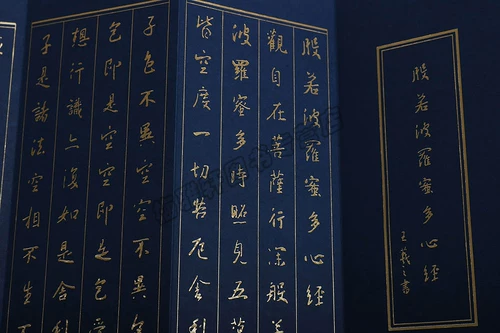 般若波羅蜜多心經
王羲之書
般若波羅蜜多心經
觀自在菩薩行深般
波羅蜜多時照見五
皆空度一切苦厄舍利
子色不異空空不異
色即是空空即是色
想行識亦復如是舍
子是諸法空相不生